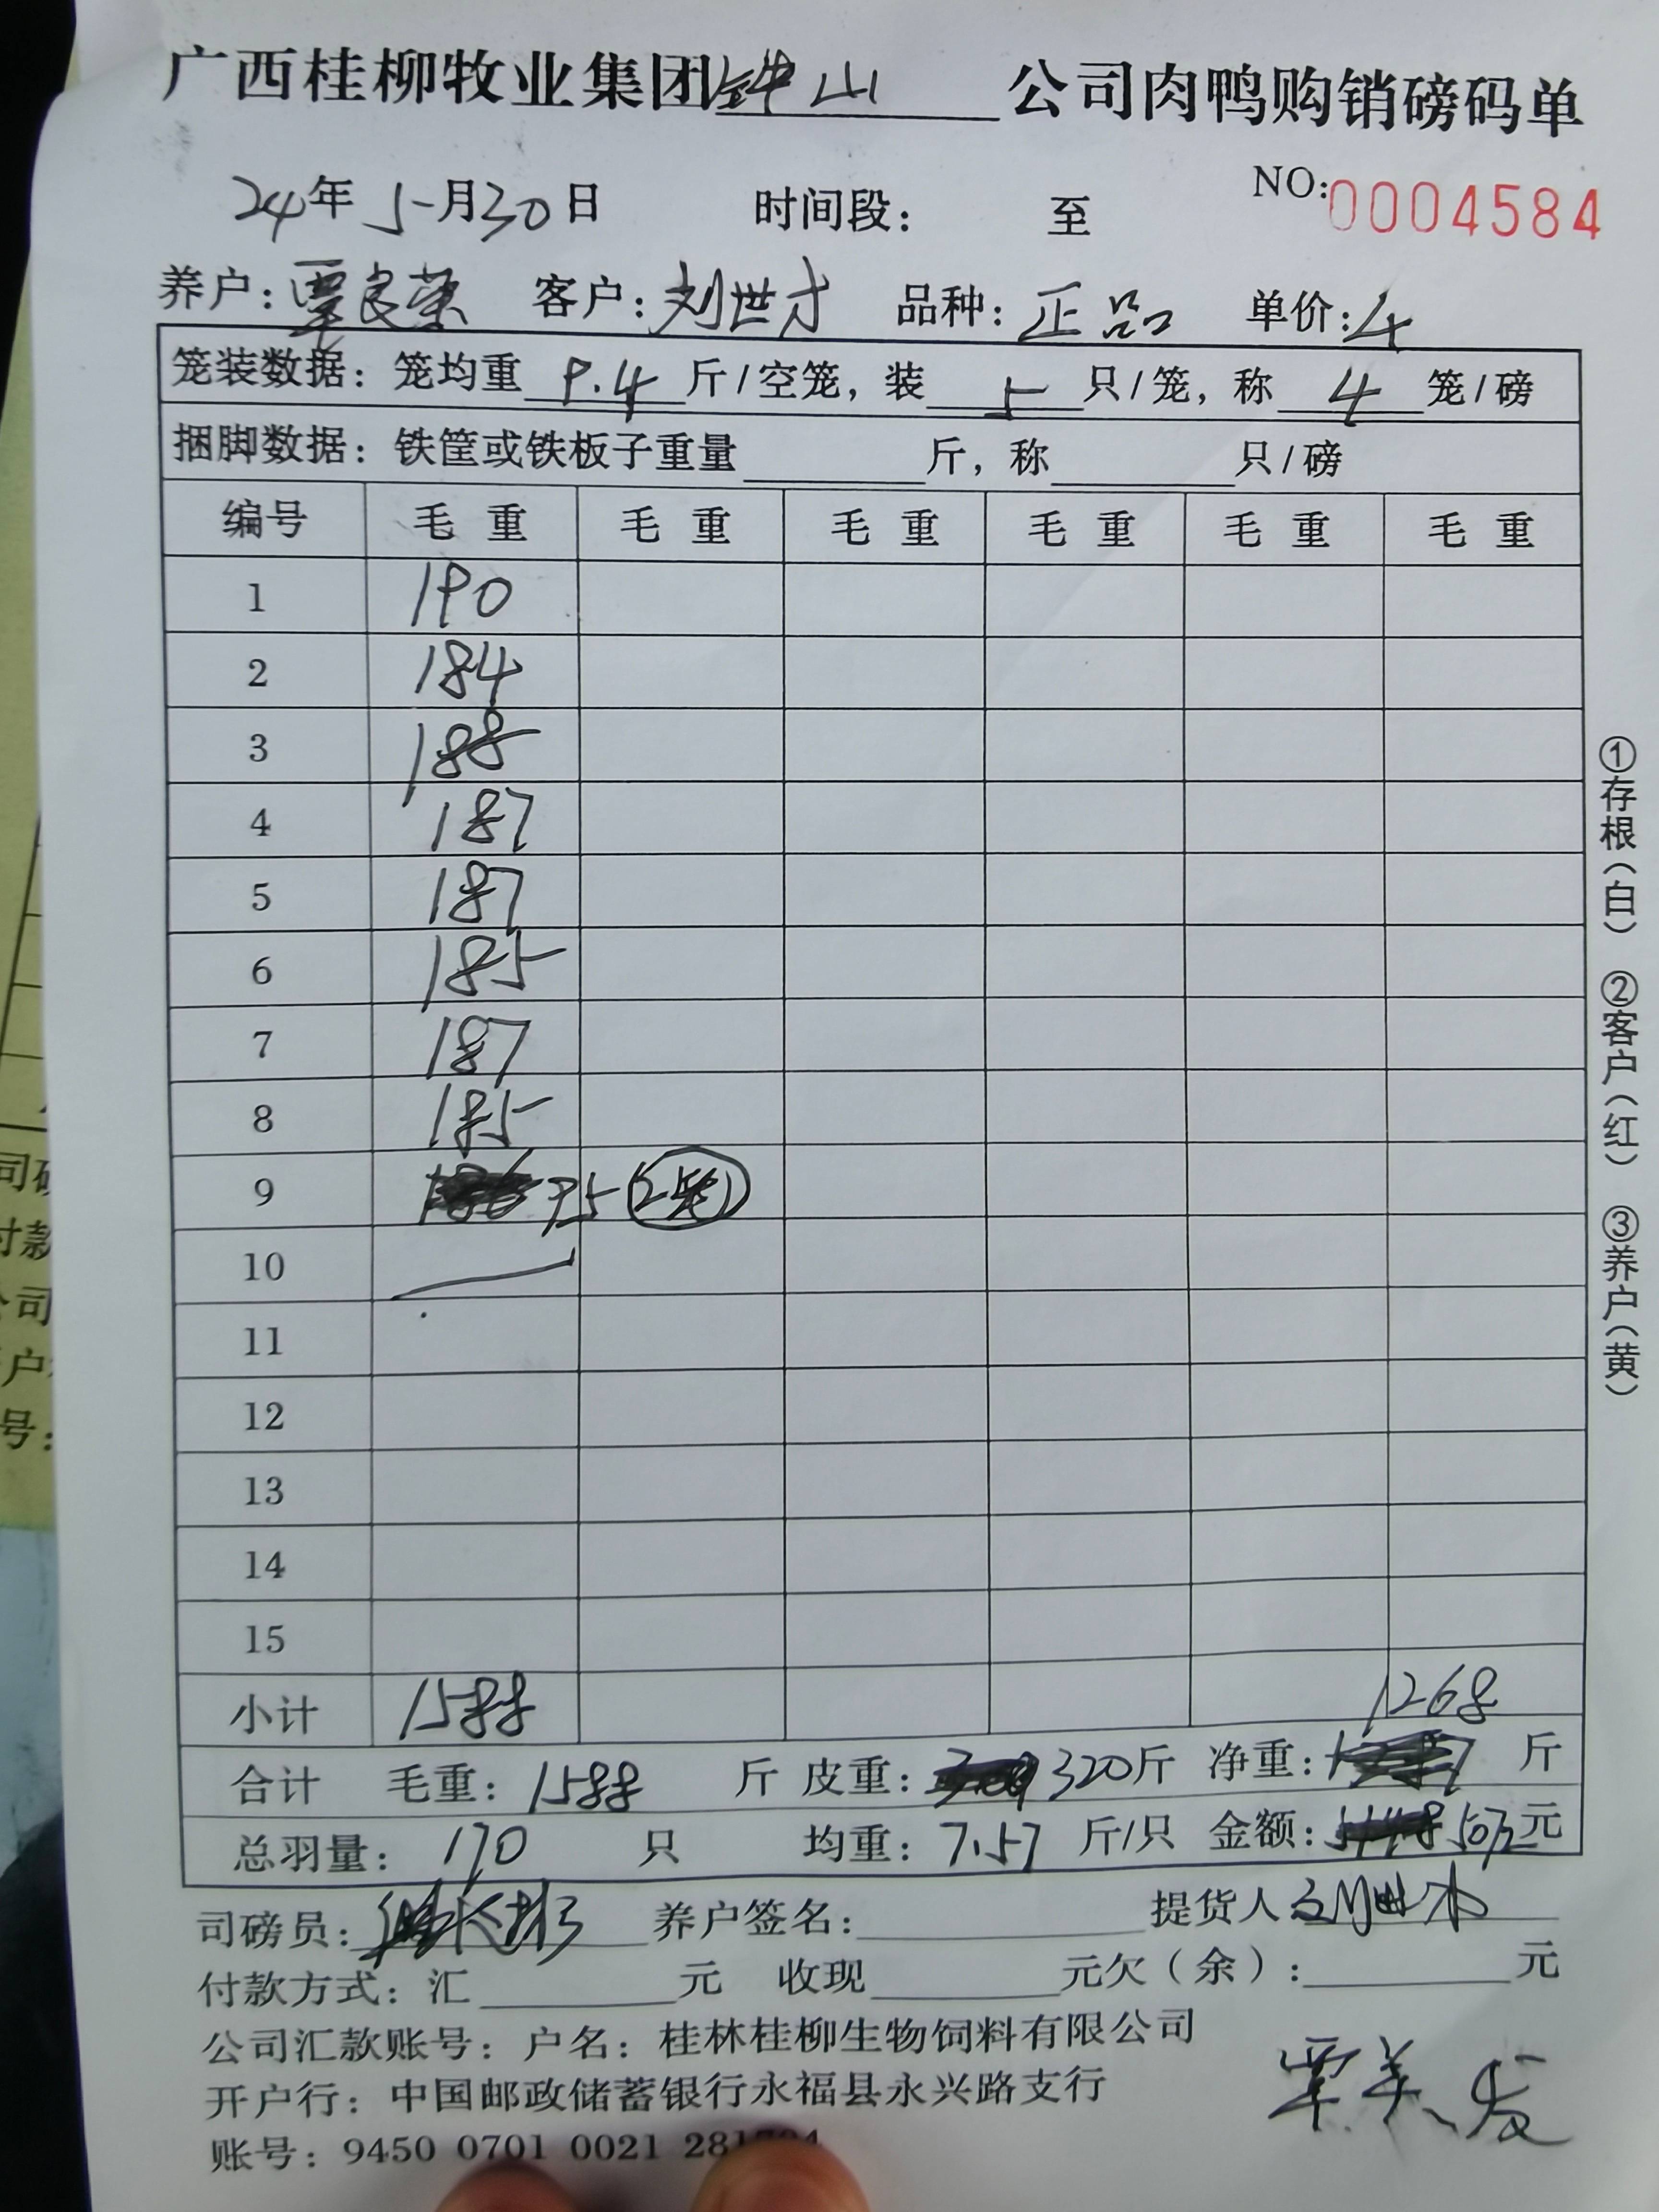 广西桂柳牧业集团钟山公司肉鸭购销磅码单
24年5月30日 时间段： 至 NO:0004584
养户：覃良荣 客户：刘世才 品种：正品 单价：4
笼装数据：笼均重9.4斤/空笼，装5只/笼，称4笼/磅
捆脚数据：铁筐或铁板子重量 斤，称 只/磅
编号 毛重 毛重 毛重 毛重 毛重 毛重
1 190
2 184
3 188
4 187
5 187
6 185
7 187
8 185
9 95(2笼)
10
11
12
13
14
15
小计 1588 1268
合计 毛重：1588 斤 皮重：320斤 净重： 斤
总羽量：170 只 均重：7.57 斤/只 金额：5072元
司磅员： 养户签名： 提货人
付款方式：汇 元 收现 元欠（余）： 元
公司汇款账号：户名：桂林桂柳生物饲料有限公司
开户行：中国邮政储蓄银行永福县永兴路支行
账号：9450 0701 0021 281
覃美发
①存根（白） ②客户（红） ③养户（黄）
司磅
付款
公司
户
号：